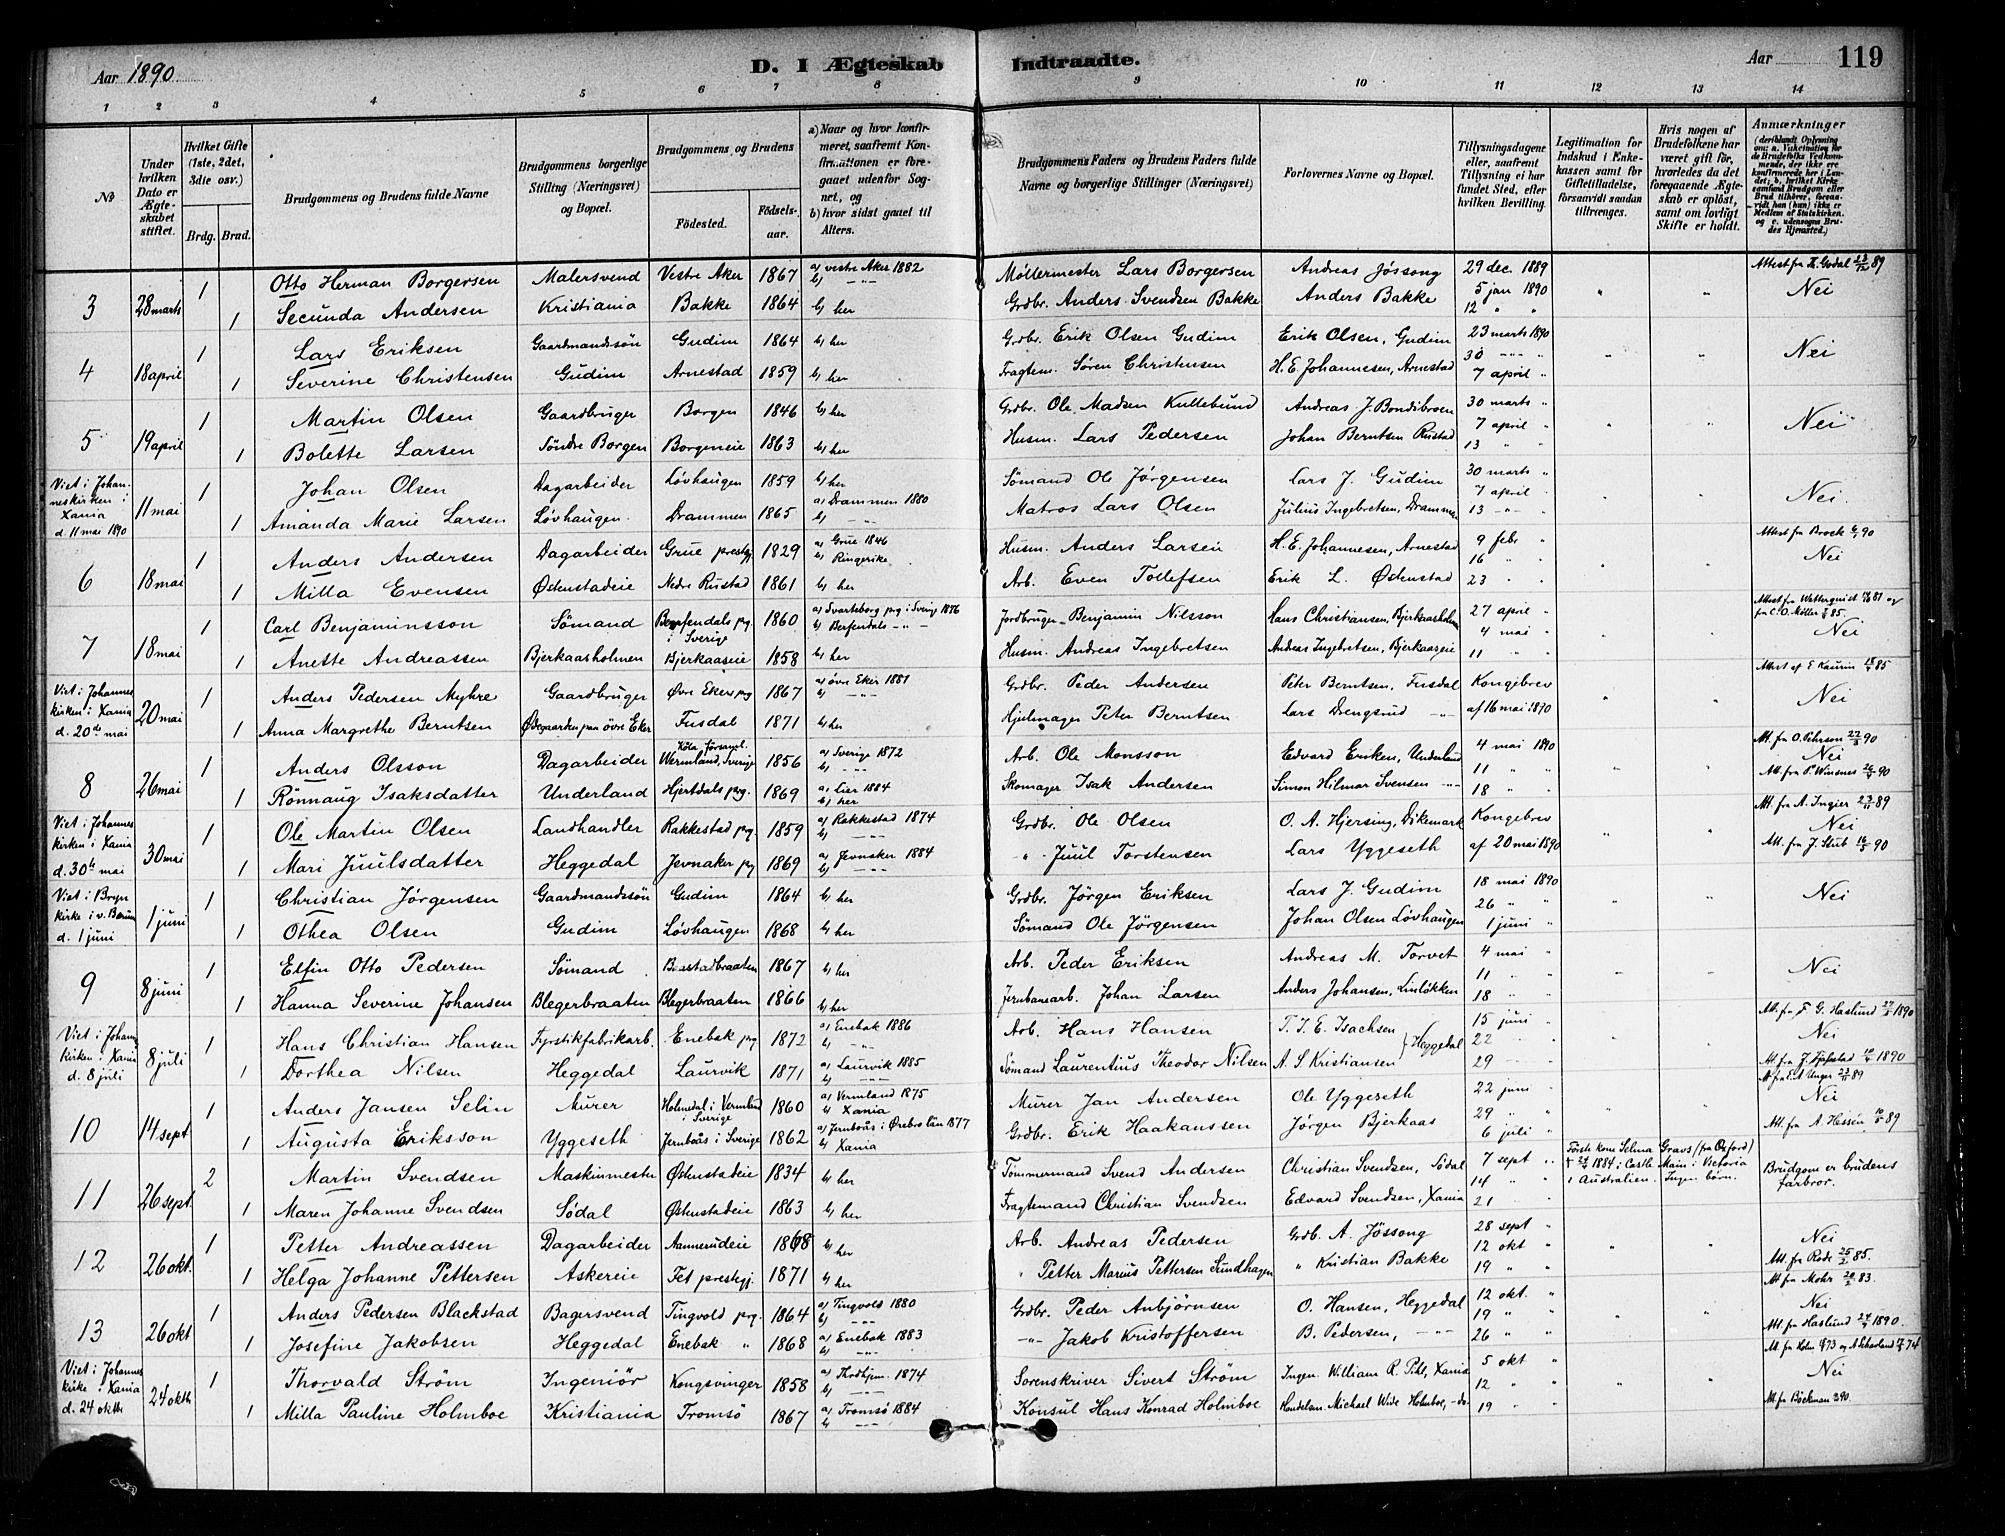 Aar 1890
D. I Ægteskab Indtraadte.
Aar
119
1 2 3 4 5 6 7 8 9 10 11 12 13 14
№
Under hvilken Dato er Ægteskabet stiftet.
Hvilket Gifte (1ste, 2det, 3die osv.)
Brdg. Brud.
Brudgommens og Brudens fulde Navne
Brudgommens borgerlige Stilling (Næringsvei) og Bopæl.
Brudgommens og Brudens
Fødested.
Fødselsaar.
a) Naar og hvor konfirmeret, saafremt Konfirmationen er foregaaet udenfor Sognet, og
b) hvor sidst gaaet til Alters.
Brudgommens Faders og Brudens Faders fulde Navne og borgerlige Stillinger (Næringsvei)
Forlovernes Navne og Bopæl.
Tillysningsdagene eller, saafremt Tillysning ei har fundet Sted, efter hvilken Bevilling.
Legitimation for Indskud i Enkekassen samt for Giftetilladelse, forsaavidt saadan tiltrænges.
Hvis nogen af Brudefolkene har været gift før, hvorledes da det foregaaende Ægteskab er opløst, samt om lovligt Skifte er holdt.
Anmærkninger
3 28 marts 1 Otto Herman Borgersen Malersvend Vestre Aker 1867 a) vestre Aker 1882 b) -"- Møllermester Lars Borgersen Andreas Jøssong 29 dec. 1889 Attest fra H. Godal 23/12 89
1 Secunda Andersen Kristiania Bakke 1864 b) her Grdbr. Anders Svendsen Bakke Anders Bakke 5 jan 1890 12 " " Nei
4 18 april 1 Lars Eriksen Gaardmandssön Gudim 1864 b) her Grdbr. Erik Olsen Gudim Erik Olsen, Gudim 23 marts 1890 30
1 Severine Christensen Gudim Arnestad 1859 b) her Fragtem. Søren Christensen H. E. Johannesen, Arnestad 7 april " Nei
5 19 april 1 Martin Olsen Gaardbruger Borgen 1846 b) her Grdbr. Ole Madsen Kullebund Andreas J. Bondibroen 30 marts "
1 Bolette Larsen Söndre Borgen Borgeneie 1863 b) her Husm. Lars Pedersen Johan Berntsen Rustad 7 april " 13 Nei
Viet i Johanneskirken i Xania d. 11 mai 1890 11 mai 1 Johan Olsen Dagarbeider Løvhaugen 1859 b) her Sömand Ole Jørgensen Lars J. Gudim 30 marts " 7 april "
1 Amanda Marie Larsen Løvhaugen Drammen 1865 a) Drammen 1880 Matros Lars Olsen Julius Ingebretsen, Drammen 13 Nei.
6 18 mai 1 Anders Andersen Dagarbeider Grue prestgj. 1829 a) Grue 1846 b) Ringerike Husm. Anders Larsen H. E. Johannesen, Arnestad 9 febr " 16 Attest fra Brock 90
1 Milla Evensen Østenstadeie Nedre Rustad 1861 b) her Arb. Even Tollefsen Erik L. Østenstad 23 " Nei
7 18 mai 1 Carl Benjaminsson Sömand Berfendals pg. i Sverige 1860 a) Svarteborg pg i Sverig 1876 b) Berfendals Jordbruger Benjamin Nilsson Hans Christiansen, Bjerkaasholmen 27 april " 4 mai
1 Anette Andreassen Bjerkaasholmen Bjerkaaseie 1858 b) her Husm. Andreas Ingebretsen Andreas Ingebretsen, Bjerkaaseie 11 " Nei
Viet i Johanneskirken i Xania d. 20de mai 20 mai 1 Anders Pedersen Myhre Gaardbruger Øvre Eker pg 1867 a) øvre Eker 1881 Grdbr. Peder Andersen Peter Berntsen, Fusdal Kongebrev
1 Anna Margrethe Berntsen Ødegaarden paa övre Eker Fusdal 1871 b) her Hjulmager Peter Berntsen Lars Drengsrud af 16 mai 1890 Nei
8 26 mai 1 Anders Olsson Dagarbeider Wermland, Sverige 1856 a) Sverige 1872 Arb. Ole Monsson Edvard Eriksen, Underland 4 mai 1890 11 Att. fra O. Pehrson 22/3 90
1 Rönnaug Isaksdatter Underland Hjertdals pg. 1869 a) Lier 1884 b) her Skomager Isak Andersen Simon Hilmar Svensen 18 " Nei Att. fra P. Winsnes 90
Viet i Johanneskirken i Xania d. 30te mai 30 mai 1 Ole Martin Olsen Landhandler Rakkestad pg 1859 a) Rakkestad 1874 Grdbr. Ole Olsen O. A. Hjersing, Dikemark Kongebrev Att. fra A. Ingier 89
1 Mari Juulsdatter Heggedal Jevnaker pg 1869 a) Jevnaker 1884 " Juul Torstensen Lars Yggeseth af 20 mai 1890 Nei Att. fra J. Stub 90
Viet i Bryn kirke i v. Bærum d. 1 juni 1 juni 1 Christian Jørgensen Gaardmandssön Gudim 1864 b) her Grdbr. Jørgen Eriksen Lars J. Gudim 18 mai 1890 26
1 Othea Olsen Gudim Løvhaugen 1868 b) her Sömand Ole Jörgensen Johan Olsen Løvhaugen 1 juni " Nei
9 8 juni 1 Elfin Otto Pedersen Sömand Braatadbraaten 1867 b) her Arb. Peder Eriksen Andreas M. Torvet 4 mai " 11
1 Hanna Severine Johansen Blegerbraaten Blegerbraaten 1866 b) her Jernbanearb. Johan Larsen Anders Johansen, Linløkken 18 " Nei
Viet i Johan. kirken i Xania d. 8 juli 8 juli 1 Hans Christian Hansen Fyrstikfabrikarb. Enebak pg 1872 a) Enebak 1886 Arb. Hans Hansen T. J. E. Isachsen 15 juni " 22 Att. fra F. G. Haslund 1890
1 Dorthea Nilsen Heggedal Laurvik 1871 a) Laurvik 1885 Sömand Laurentius Theodor Nilsen A. S. Kristiansen } Heggedal 29 Nei
10 14 sept 1 Anders Jansen Selin Murer Holmedal i Vermland i Sverige 1860 a) Vermland 1875 b) Xania Murer Jan Andersen Ole Yggeseth 22 juni " 29 Att. fra E. A. Unger 89
1 Augusta Eriksson Yggeseth Jernboås i Sverige 1862 a) Jernboås i Örebro län 1877 b) Xania Grdbr. Erik Haakanssen Jørgen Bjerkaas 6 juli " Nei Att. fra A. Hessén 89
11 26 sept. 2 Martin Svendsen Maskinmester Østenstadeie 1834 b) her Tömmermand Svend Andersen Christian Svendsen, Södal 7 sept " 14 Förste kone Selma Gravs (fra Oxford) † 1884 i Castle Main i Victoria i Australien. Ingen børn.
1 Maren Johanne Svendsen Södal Østenstadeie 1863 b) her Fragtemand Christian Svendsen Edvard Svendsen, Xania 21 " Brudgom er brudens farbror.
12 26 okt. 1 Petter Andreassen Dagarbeider Aamerudeie 1868 b) her Arb. Andreas Pedersen Grdb. A. Jøssong 28 sept " 12 okt " Nei
1 Helga Johanne Pettersen Askereie Fet prestegj. 1871 b) her " Petter Marius Pettersen Sundhagen " Kristian Bakke 19 " Att. fra Rode 85.
13 26 okt 1 Anders Pedersen Blackstad Bagersvend Tingvold pg. 1864 a) Tingvold 1880 Grdbr. Peder Anbjörnsen O. Hansen, Heggedal 12 okt. " 19 Att. fra Mohr 83.
1 Josefine Jakobsen Heggedal Enebak " 1868 a) Enebak 1883 -"- Jakob Kristoffersen B. Pedersen, -"- 26 " Nei Att. fra Haslund 1890.
Viet i Johanneskirke i Xania d. 24 oktbr 24 oktbr 1 Thorvald Ström Ingeniör Kongsvinger 1858 a) Throhjem 1874 Sorenskriver Sivert Ström Ingen. William R. Pihl, Xania 5 okt " 12
1 Milla Pauline Holmboe Kristiania Tromsö 1867 a) Tromsö 1884 Konsul Hans Konrad Holmboe Handelsm. Michael Wide Holmboe, -do- 19 " Nei Att. fra Böckman 90.